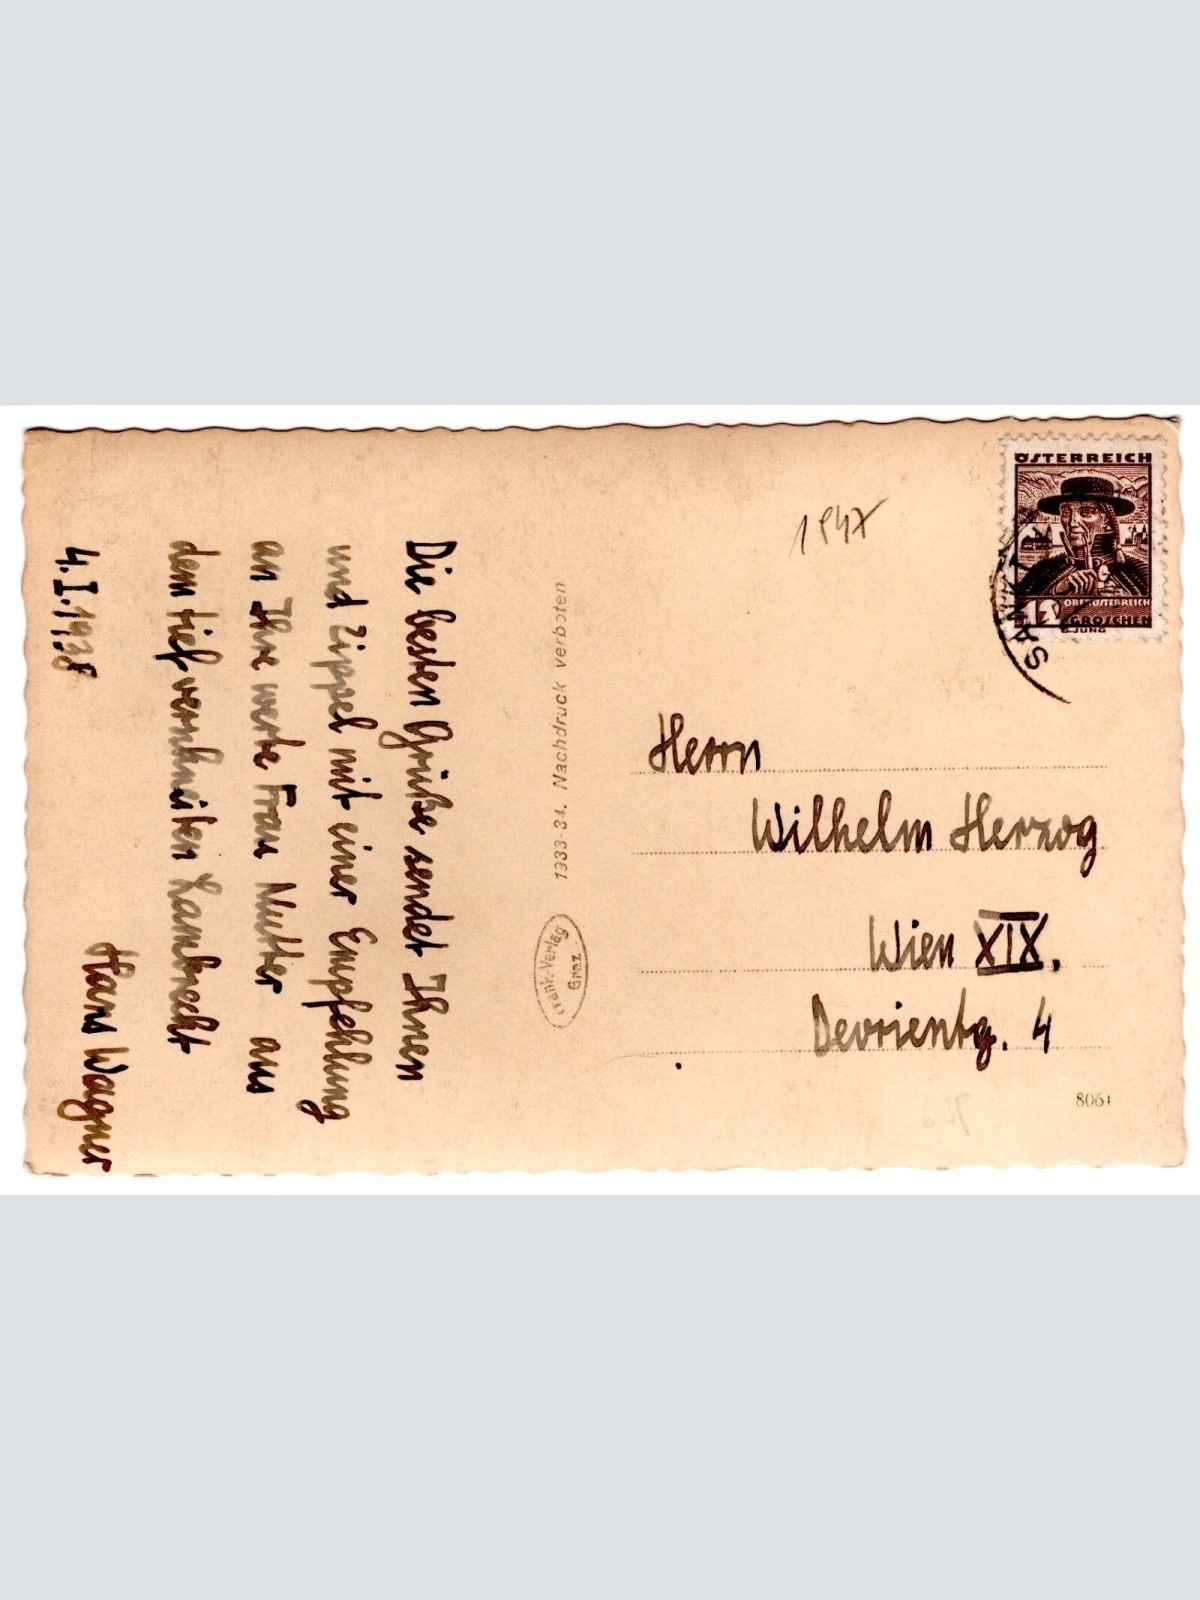 Die besten Grüße sendet Ihnen
und Zippel mit einer Empfehlung
an Ihre werte Frau Mutter aus
dem tief verschneiten Lambrecht
Hans Wagner
4.I.1938
1933-34. Nachdruck verboten
Frank-Verlag
Graz.
1847
ÖSTERREICH
12
OBERÖSTERREICH
GROSCHEN
G.JUNG
SANKT
Herrn
Wilhelm Herzog
Wien XIX.
Devrientg. 4
8061